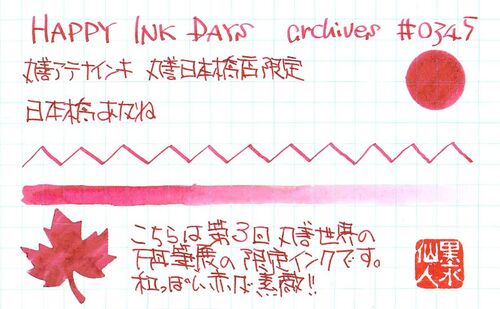 HAPPY INK DAYS archives #0345
丸善アテナインキ 丸善日本橋店限定
日本橋あかね
こちらは第3回丸善世界の
万年筆展の限定インクです。
和っぽい赤が素敵!!
墨水
仙人